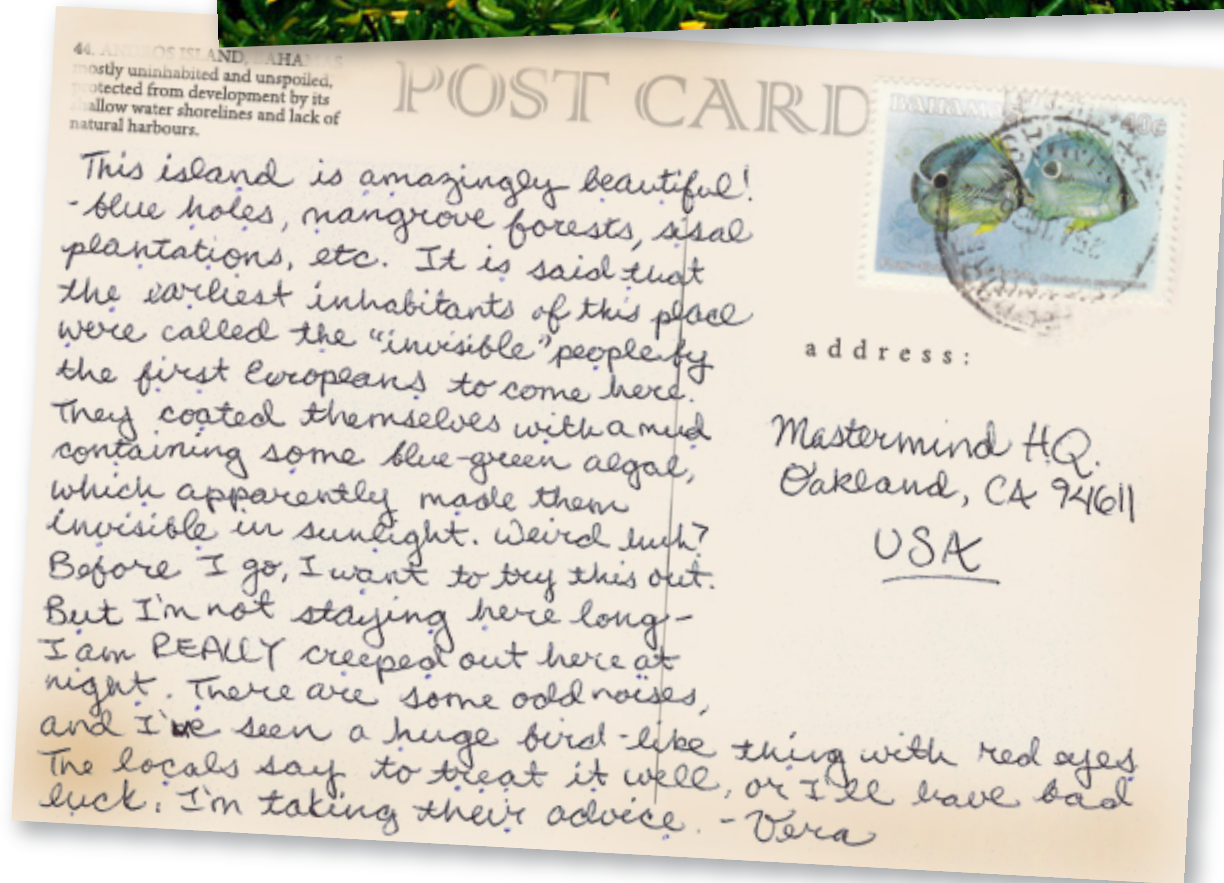 44. ANDROS ISLAND, BAHAMAS
mostly uninhabited and unspoiled,
protected from development by its
shallow water shorelines and lack of
natural harbours.
POST CARD
BAHAMAS 40c
This island is amazingly beautiful!
-blue holes, mangrove forests, sisal
plantations, etc. It is said that
the earliest inhabitants of this place
were called the "invisible" people by
the first Europeans to come here.
They coated themselves with a mud
containing some blue-green algae,
which apparently made them
invisible in sunlight. Weird huh?
Before I go, I want to try this out.
But I'm not staying here long-
I am REALLY creeped out here at
night. There are some odd noises,
and I've seen a huge bird-like thing with red eyes.
The locals say to treat it well, or I'll have bad
luck. I'm taking their advice. - Vera
address:
Mastermind HQ.
Oakland, CA 94611
USA